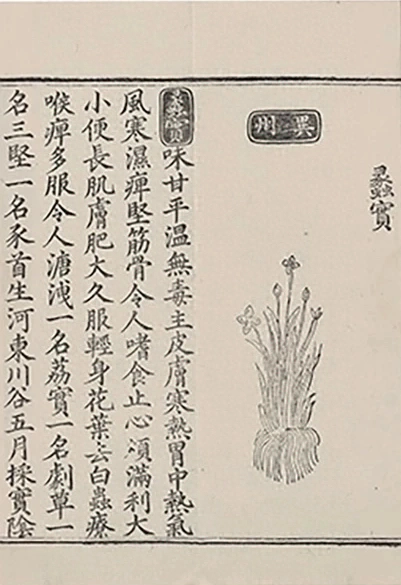 蠡實
冀州
蠡實味甘平溫無毒主皮膚寒熱胃中熱氣
風寒濕痺堅筋骨令人嗜食止心煩滿利大
小便長肌膚肥大久服輕身花葉去白蟲療
喉痺多服令人溏洩一名荔實一名劇草一
名三堅一名豕首生河東川谷五月採實陰